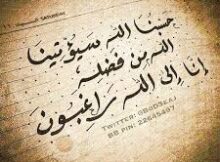 حسبنا الله سيؤتينا
الله من فضله
إنا إلى الله راغبون
TWITTER: @BaD3eAJ
BB PIN: 22645497